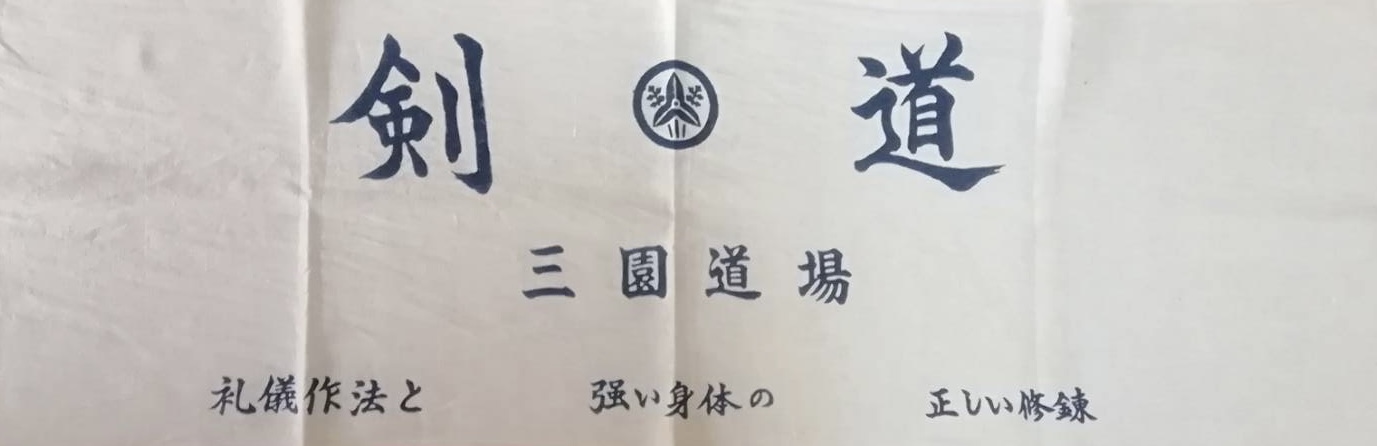 剣 道
三園道場
礼儀作法と 强い身体の 正しい修錬